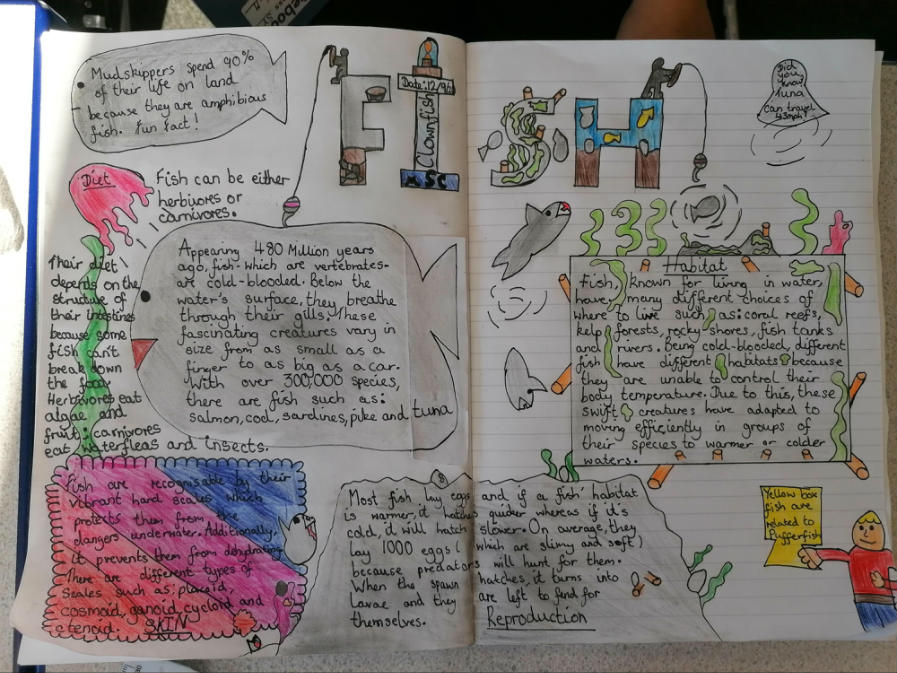 Mudskippers spend 90%
of their life on land
because they are amphibious
fish. Fun Fact!
FISH
Date:12/96
Clownfish
MSC
Did
you
know
tuna
can travel
43mph?
Diet
Fish can be either
herbivores or
carnivores.
Their diet
depends on the
structure of
their intestines
because some
fish can't
break down
the food.
Herbivores eat
algae and
fruit; carnivores
eat waterfleas and insects.
Appearing 480 Million years
ago, fish- which are vertebrates-
are cold-blooded. Below the
water's surface, they breathe
through their gills. These
fascinating creatures vary in
size from as small as a
finger to as big as a car.
With over 300,000 species,
there are fish such as:
salmon, cod, sardines, pike and tuna
Habitat
Fish, known for living in water,
have, many different choices of
where to live such as: coral reefs,
kelp forests, rocky-shores, fish tanks
and rivers. Being cold-blooded, different
fish have different habitats because
they are unable to control their
body temperature. Due to this, these
swift creatures have adapted to
moving efficiently in groups of
their species to warmer or colder
waters.
Fish are recognisable by their
vibrant hard scales which
protects them from the
dangers underwater. Additionally,
it prevents them from dehydrating
There are different types of
scales such as; placoid,
cosmoid, ganoid, cycloid and
ctenoid. SKIN
Most fish lay eggs and if a fish' habitat
is warmer, it hatches quicker whereas if it's
cold, it will hatch slower. On average, they
lay 1000 eggs ( which are slimy and soft)
because predators will hunt for them.
When the spawn hatches, it turns into
Lavae and they are left to fend for
themselves. Reproduction
Yellow box
fish are
related to
Pufferfish